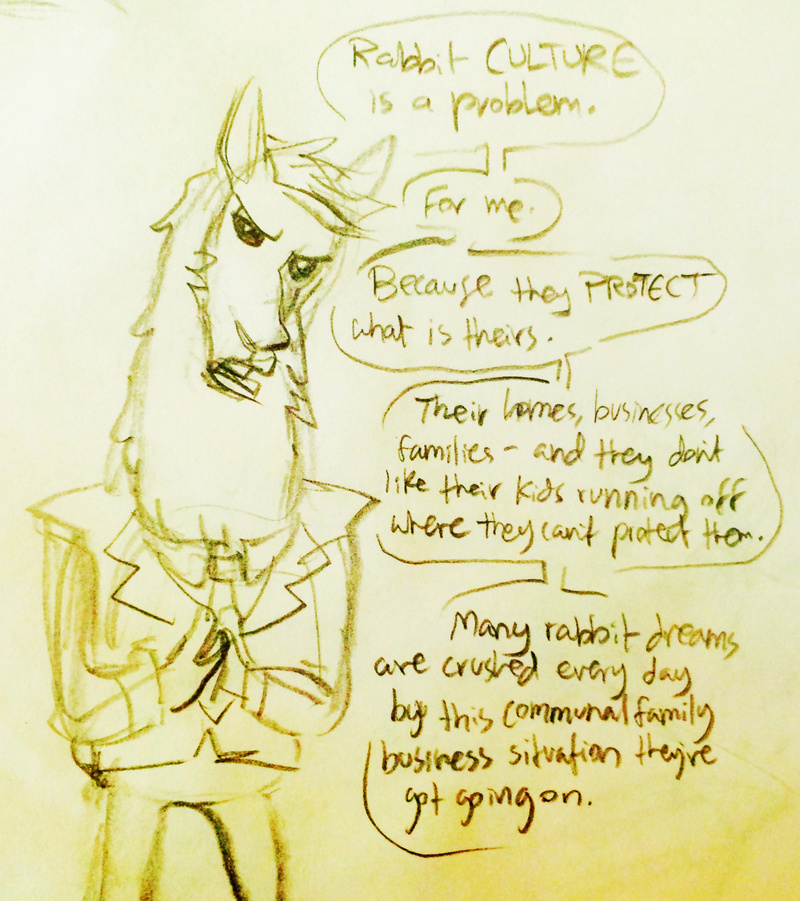 Rabbit CULTURE
is a problem.
For me.
Because they PROTECT
what is theirs.
Their homes, businesses,
families - and they don't
like their kids running off
where they can't protect them.
Many rabbit dreams
are crushed every day
by this communal family
business situation they're
got going on.